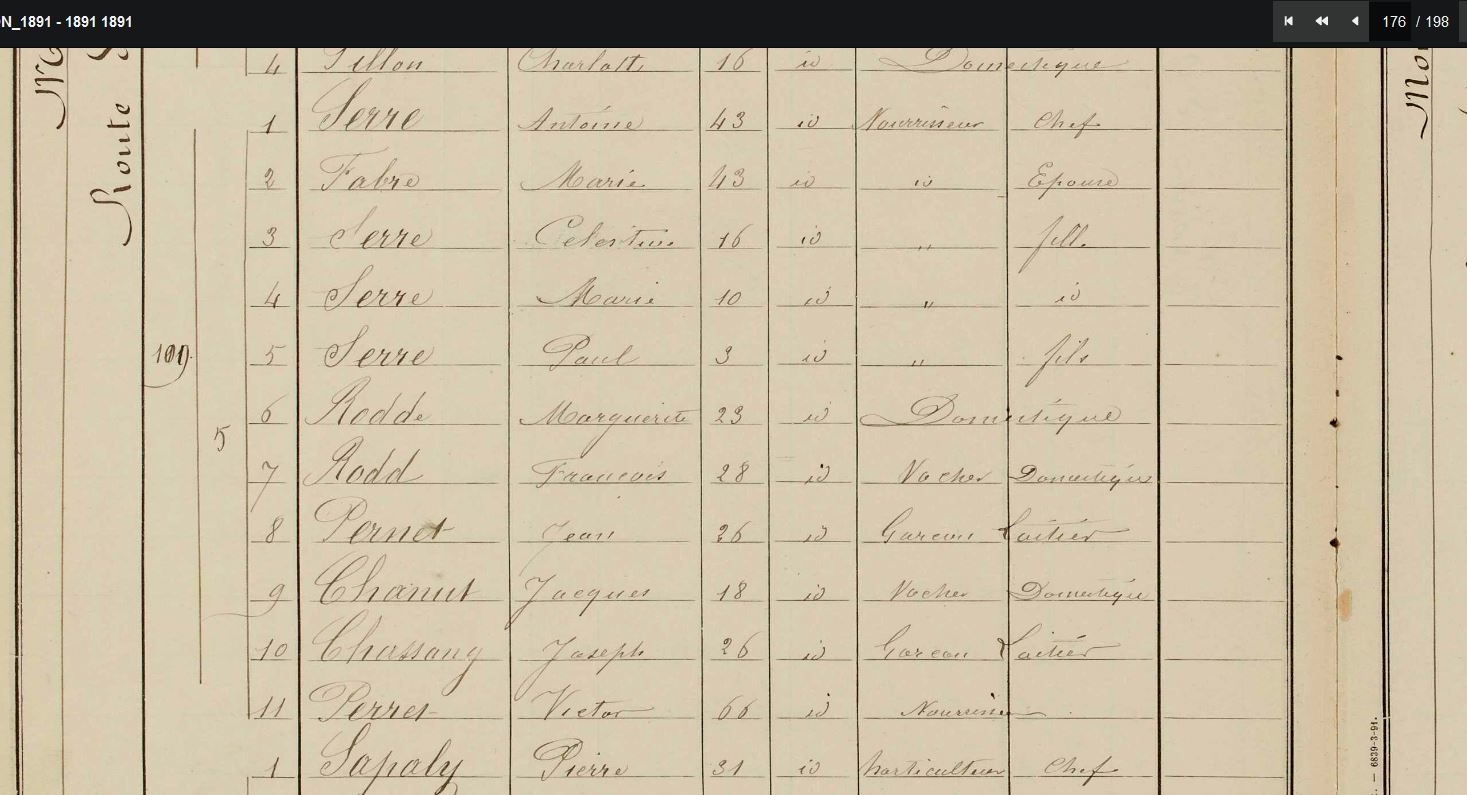 N_1891 - 1891 1891 176 / 198
Route
4 Tillon Charlotte 16 id Domestique
1 Serre Antoine 43 id Nourrisseur Chef
2 Fabre Marie 43 id id Epouse
3 Serre Celestine 16 id " fille
4 Serre Marie 10 id " id
109 5 Serre Paul 3 id " fils
6 Rodde Marguerite 23 id Domestique
5
7 Rodd Francois 28 id Vacher Domestique
8 Pernet Jean 26 id Garcon Laitier
9 Chanut Jacques 18 id Vacher Domestique
10 Chassang Joseph 26 id Garcon Laitier
11 Perret Victor 66 id Nourrisseur
1 Sapaly Pierre 31 id horticulteur Chef
— 6839-3-91.